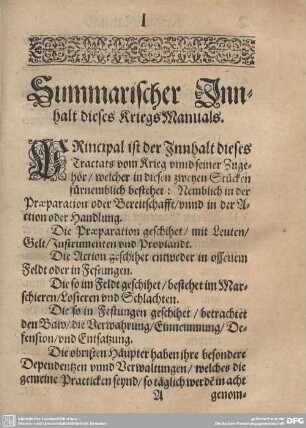 1
Summarischer Inn-
halt dieses KriegsManuals.
PRincipal ist der Innhalt dieses
Tractats vom Krieg vnnd seiner Zuge-
hör/ welcher in diesen zweyen Stücken
fürnemblich bestehet: Nemblich in der
Præparation oder Bereitschafft/ vnnd in der A-
ction oder Handlung.
Die Præparation geschihet/ mit Leuten/
Gelt/ Instrumenten vnd Proviandt.
Die Action geschihet entweder in offenem
Feldt oder in Festungen.
Die so im Feldt geschihet/ bestehet im Mar-
schieren/ Losieren vnd Schlachten.
Die so in Festungen geschihet/ betrachtet
den Baw/ die Verwahrung/ Einnemmung/ De-
fension/ vnd Entsatzung.
Die obristen Häupter haben ihre besondere
Dependentzen vnnd Verwaltungen/ welches die
gemeine Practicken seynd/ so täglich werdē in acht
A genom-